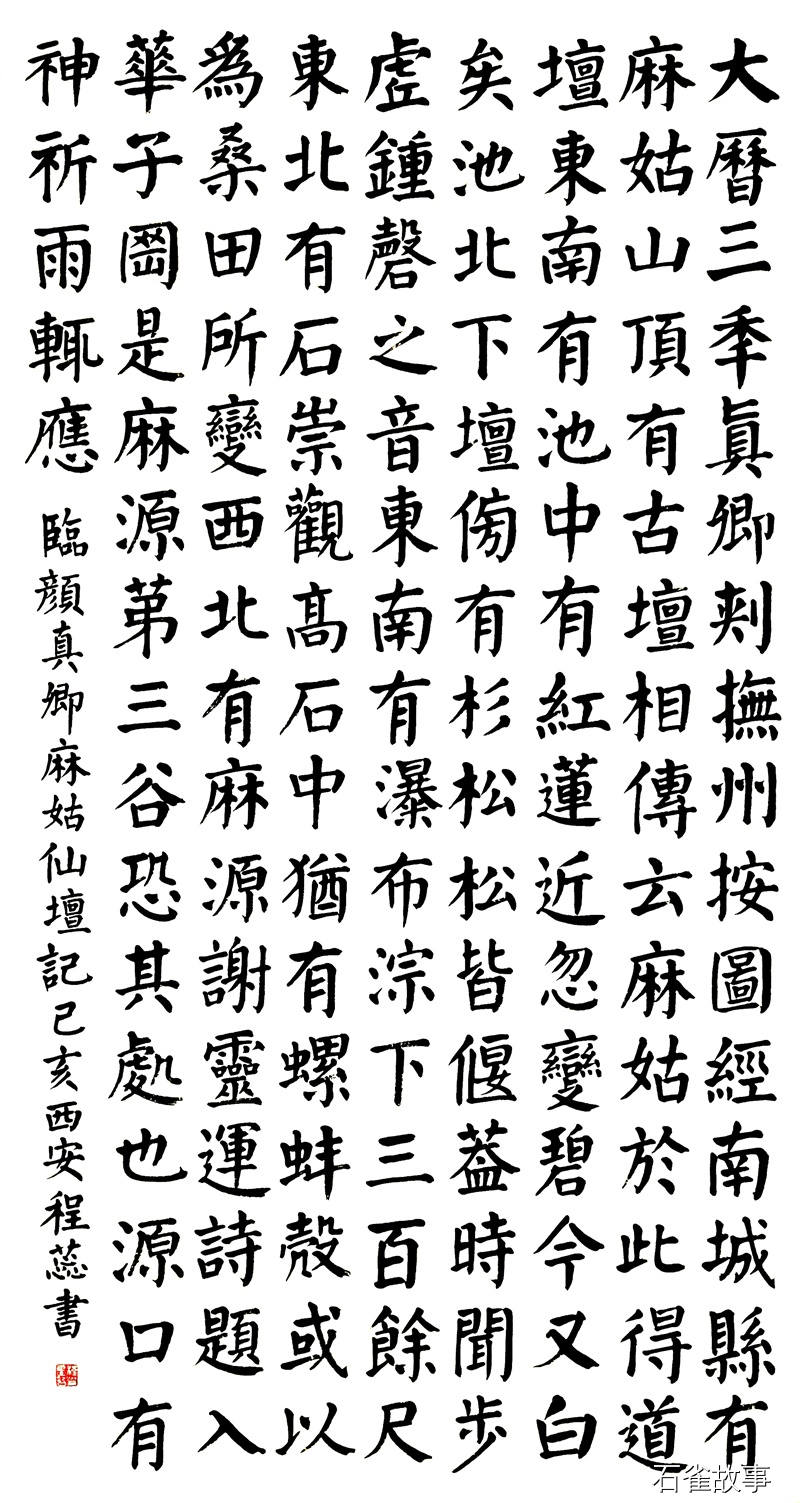 大曆三季眞卿刾撫州按圖經南城縣有
麻姑山頂有古壇相傳云麻姑於此得道
壇東南有池中有紅蓮近忽變碧今又白
矣池北下壇傍有杉松松皆偃蓋時聞步
虛鍾磬之音東南有瀑布淙下三百餘尺
東北有石崇觀高石中猶有螺蚌殻或以
爲桑田所變西北有麻源謝靈運詩題入
華子岡是麻源第三谷恐其處也源口有
神祈雨輒應
臨顔真卿麻姑仙壇記己亥西安程蕊書
石雀故事